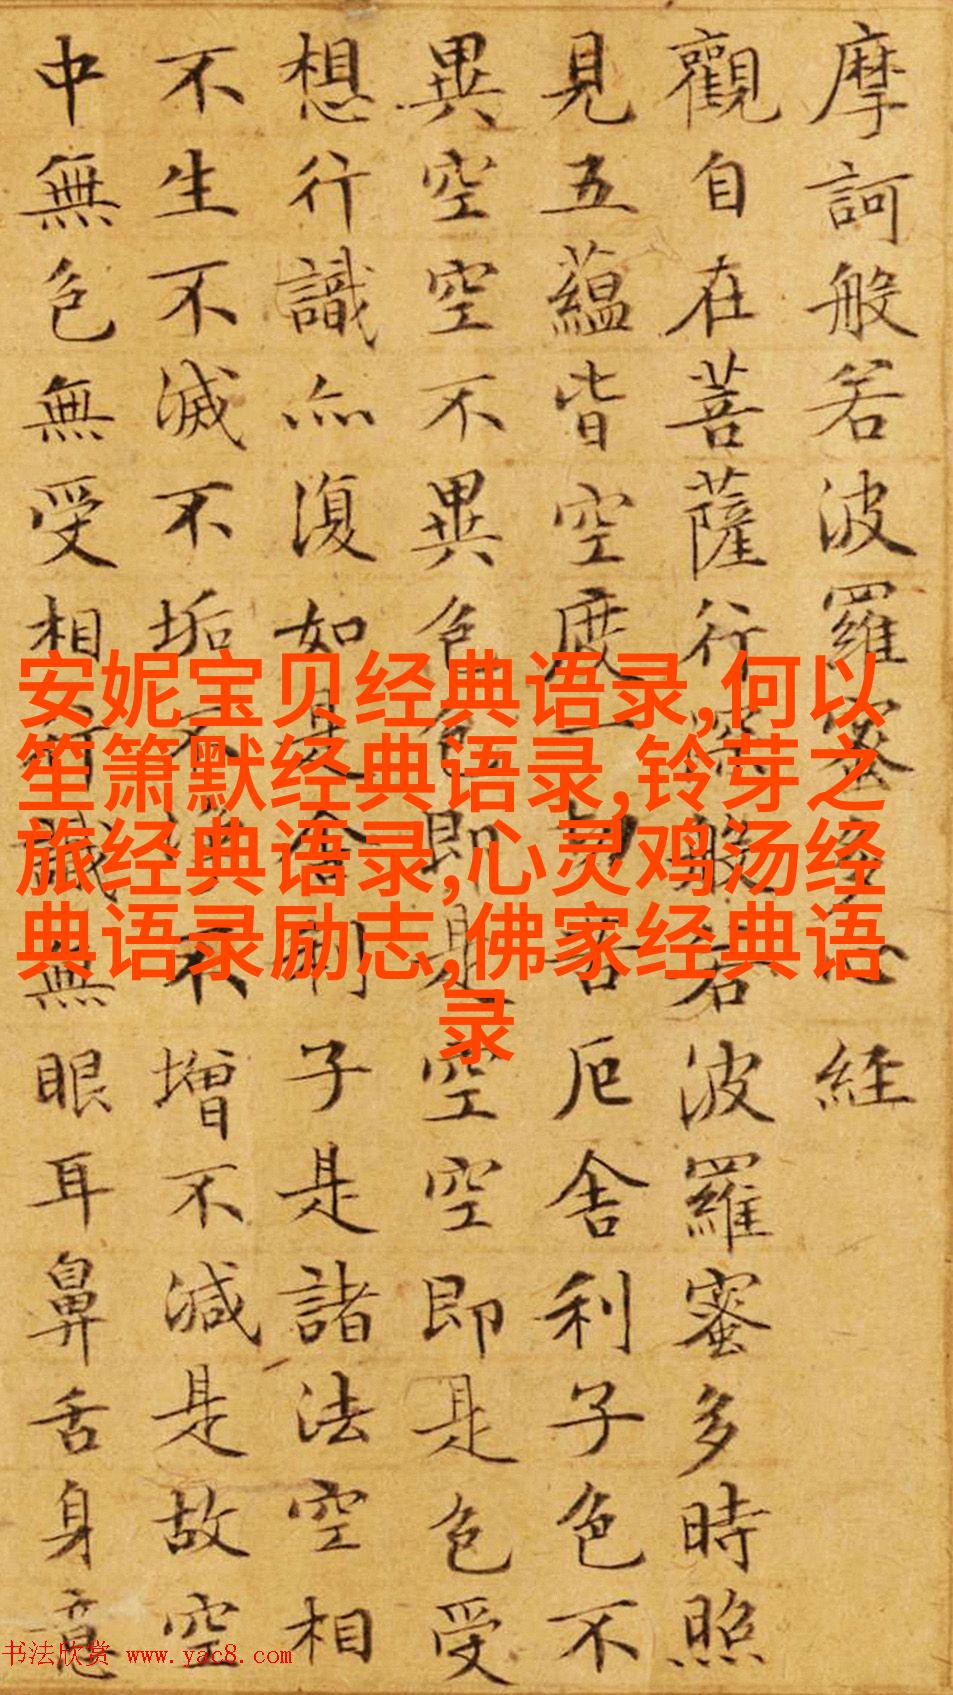 摩訶般若波羅蜜多心經
觀自在菩薩行深般若波羅蜜多時照
見五蘊皆空度一切苦厄舍利子色不
異空空不異色色即是空空即是色受
想行識亦復如是舍利子是諸法空相
不生不滅不垢不淨不增不減是故空
中無色無受想行識無眼耳鼻舌身意
安妮宝贝经典语录,何以
笙箫默经典语录,铃芽之
旅经典语录,心灵鸡汤经
典语录励志,佛家经典语
录
书法欣赏 www.yac8.com